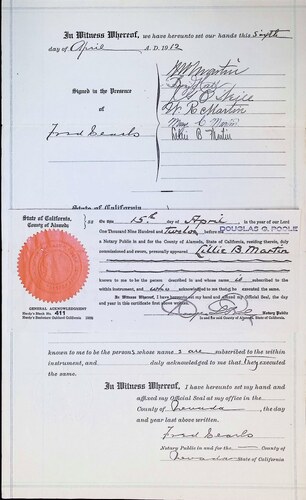 In Witness Whereof, we have hereunto set our hands this Sixth
day of April A. D. 1912
W W Martin
Signed in the Presence
of
W. R. Martin
May C Martin
Lillie B. Martin
Fred Searls
State of California
State of California,
County of Alameda
ss
On this 15th day of April in the year of our Lord
One Thousand Nine Hundred and Twelve before me DOUGLAS G. POOLE
a Notary Public in and for the County of Alameda, State of California, residing therein, duly
commissioned and sworn, personally appeared Lillie B. Martin
known to me to be the person described in and whose name is subscribed to the
within instrument, and who acknowledged to me that she executed the same.
In Witness Whereof, I have hereunto set my hand and affixed my Official Seal, the day
and year in this certificate first above written.
GENERAL ACKNOWLEDGMENT
411
Notary Public
In and for said County of Alameda, State of California
known to me to be the persons whose name s are subscribed to the within
instrument, and duly acknowledged to me that they executed
the same.
In Witness Whereof, I have hereunto set my hand and
affixed my Official Seal at my office in the
County of Nevada, the day
and year last above written.
Fred Searls
Notary Public in and for the County of
Nevada State of California